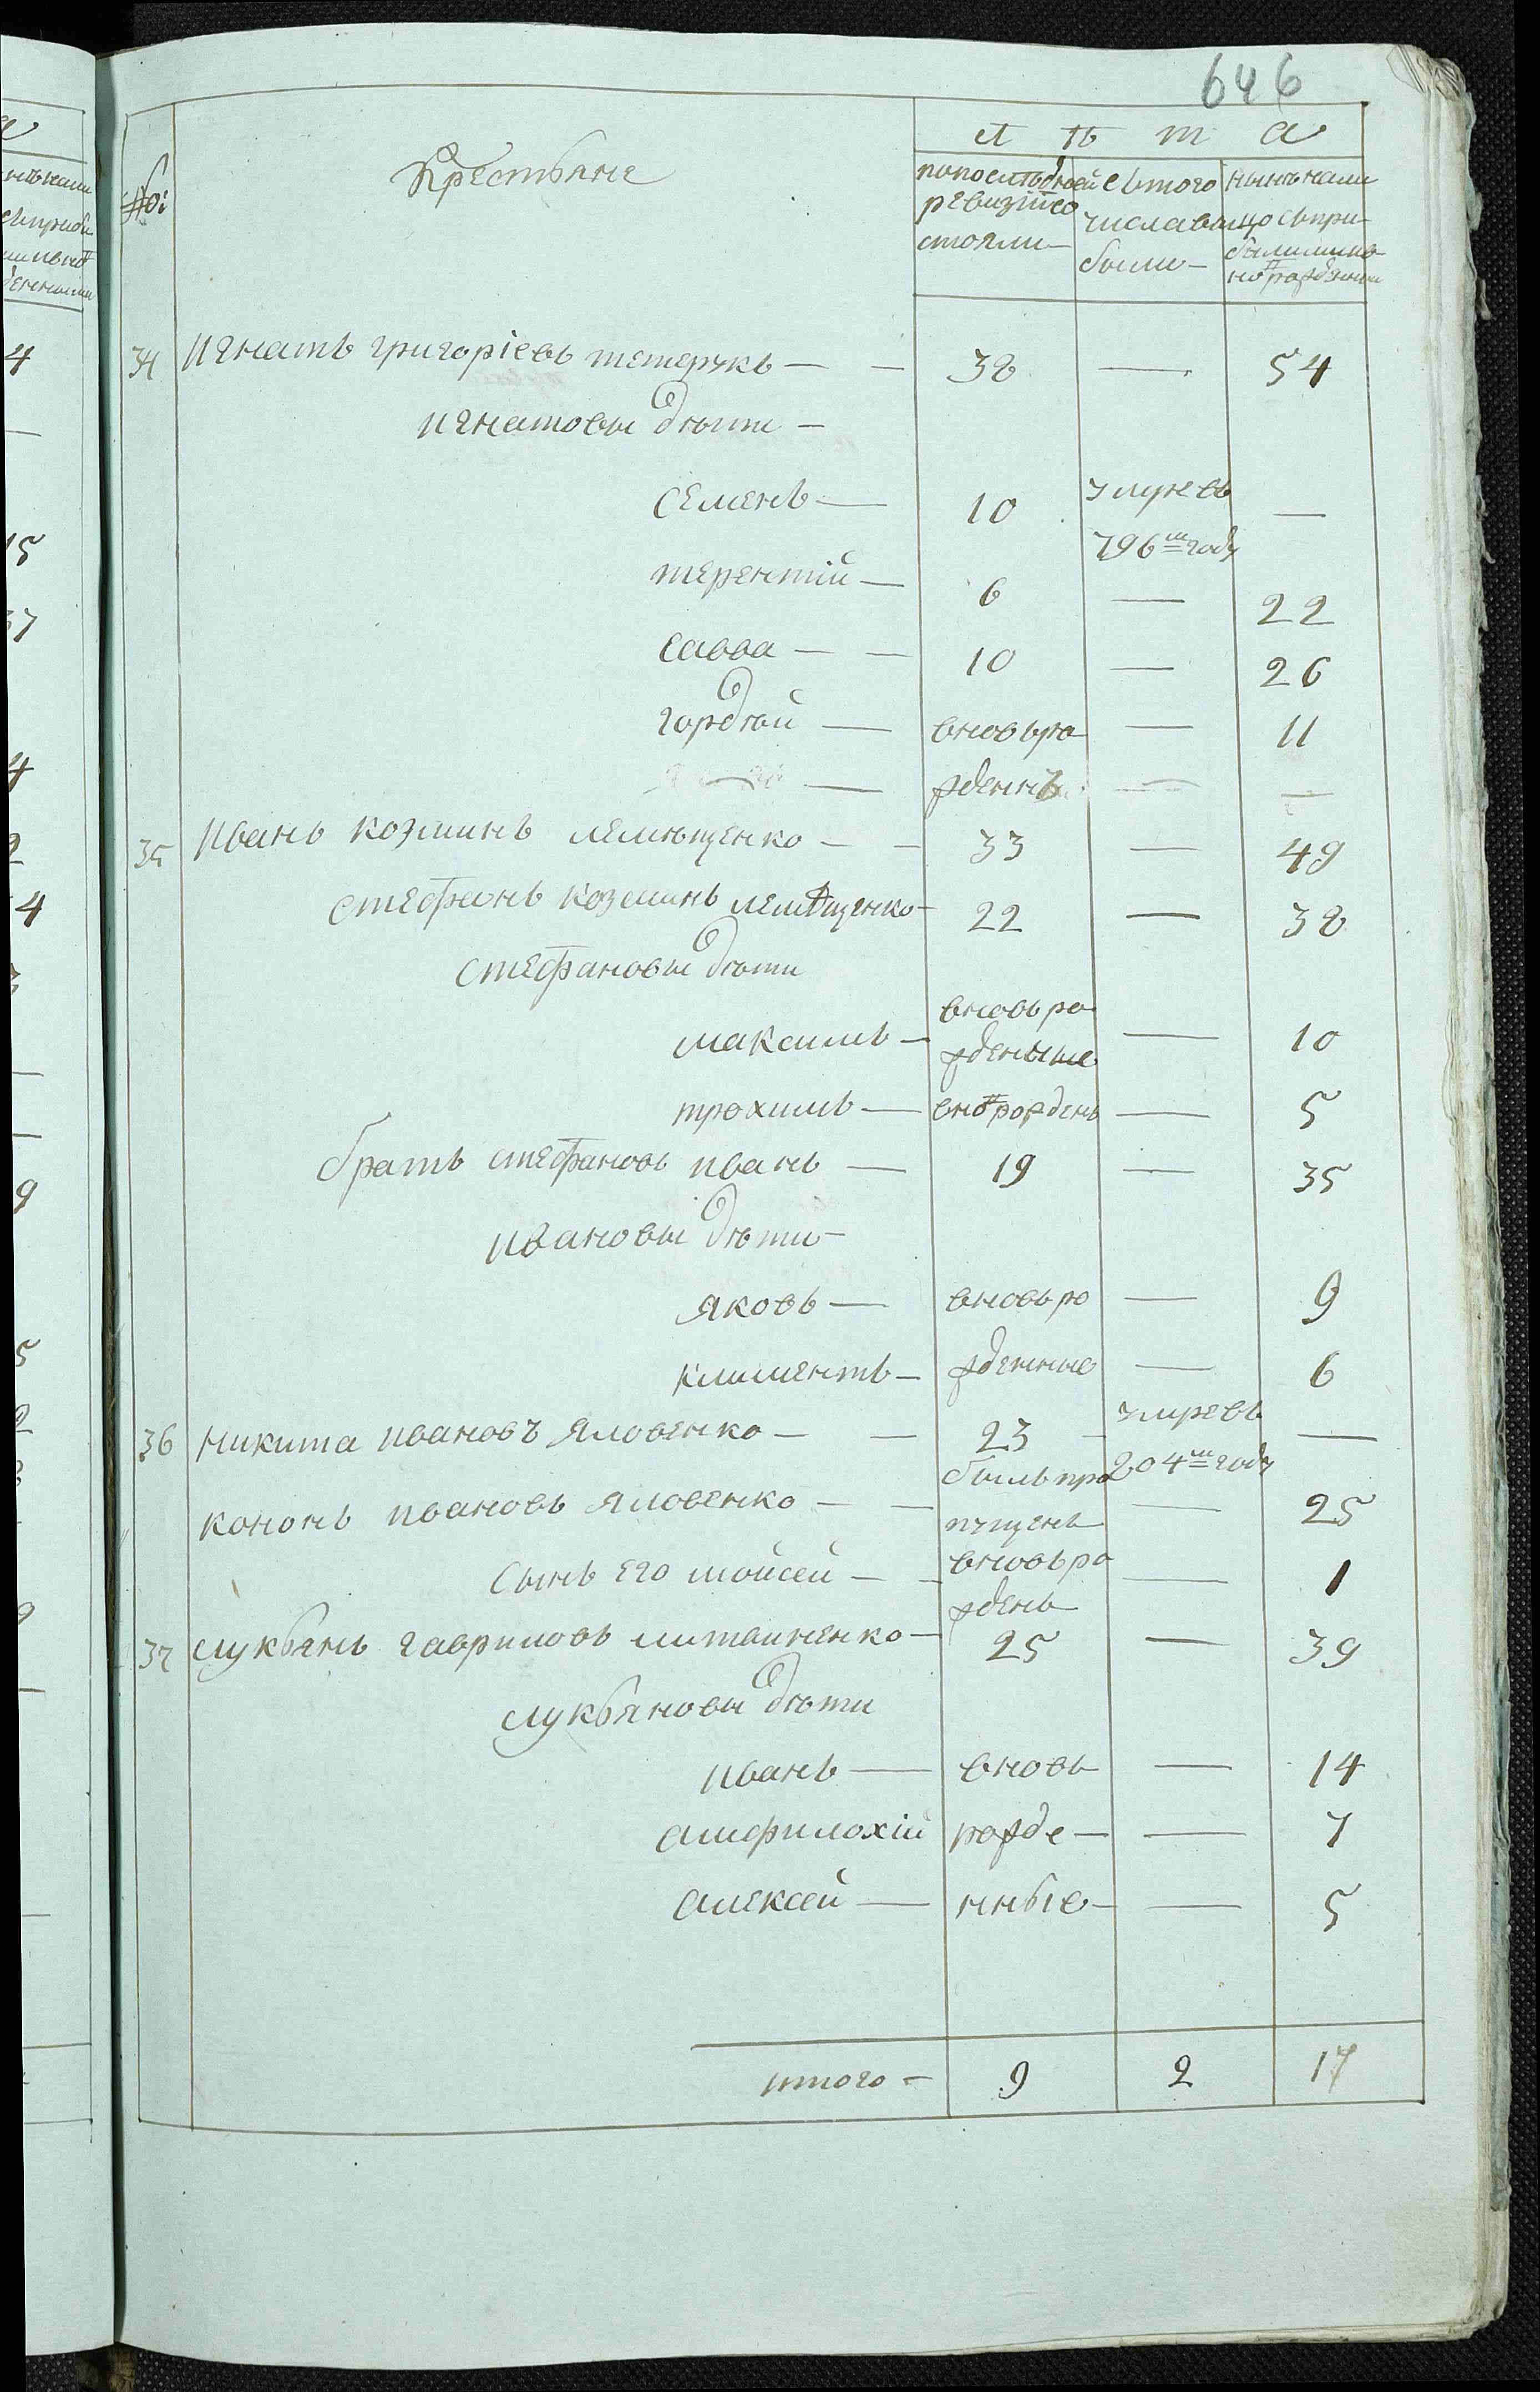 646
№:
Крестьяне
л ѣ т а
по последней ревизіи состояли
съ того числа выбыли
ныне нали цо съ при былими и вновь рожденными
34 Игнатъ григоріевъ тетерукъ — — 38 — 54
игнатовы дѣти —
семенъ — 10 умре въ 796м году —
терентій — 6 — 22
савва — — 10 — 26
гордѣй — вновь ро — 11
— жденнъ — —
35 Иванъ козминъ лемѣщенко — — 33 — 49
стефанъ козминъ лемѣщенко — 22 — 38
стефановы дѣти
максимъ — вновь ро жденные — 10
трохимъ — вновь рожденъ — 5
братъ стефановъ иванъ — 19 — 35
ивановы дѣти —
яковъ — вновь ро — 9
климентъ — жденные — 6
36 никита ивановъ яловенко — — 23 — умре въ 204м году —
кононъ ивановъ яловенко — — былъ про пущенъ — 25
сынъ его мойсей — — вновь ро жденъ — 1
37 лукьянъ гавриловъ литвиненко — 25 — 39
лукьяновы дѣти
иванъ — вновь — 14
амфилохій рожде — — 7
алексей — нные — — 5
итого — 9 2 17